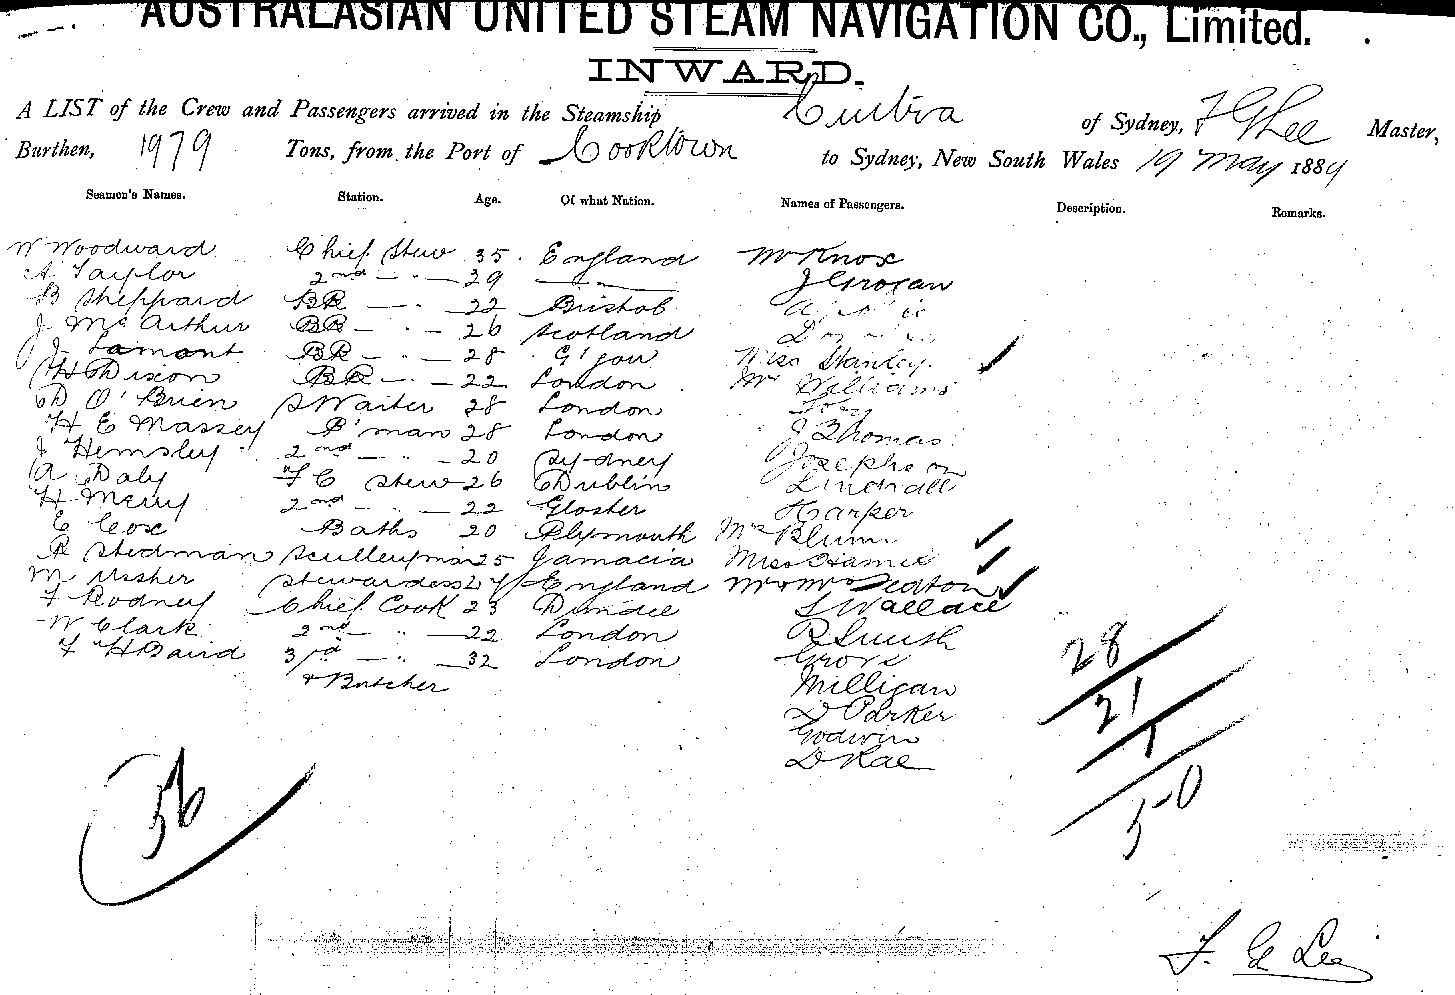 AUSTRALASIAN UNITED STEAM NAVIGATION CO., Limited.
INWARD.
A LIST of the Crew and Passengers arrived in the Steamship of Sydney, F G Lee Master,
Burthen, 1979 Tons, from the Port of Cooktown to Sydney, New South Wales 19 May 1889
Seamen's Names. Station. Age. Of what Nation. Names of Passengers. Description. Remarks.
W Woodward Chief Stew 35 England Mr Knox
A Taylor 2nd - " - 29 — J Grogan
B Sheppard BR - " - 22 Bristol
J McArthur BR - " - 26 Scotland
J Lamont BR - " - 28 G'gow Miss Stanley
H Dixon BR - " - 22 London Mr Williams
D O'Brien S Waiter 28 London
H E Massey P'man 28 London J Thomas
J Hemsley 2nd - " - 20 Sydney Josephson
A Daly F C Stew 26 Dublin
H Merry 2nd - " - 22 Gloster Harper
E Cox Baths 20 Plymouth Mrs Blum
R Stedman Sculleyman 25 Jamacia Miss
M Ussher Stewardess 27 England Mr & Mrs
F Rodney Chief Cook 23 Dundee S Wallace
W Clark 2nd - " - 22 London R Smith
F H Baird 3rd - " - 32 London Grove
& Butcher Milligan
D Parker
Godwin
D Rae
28
21
1
50
56
F. G Lee